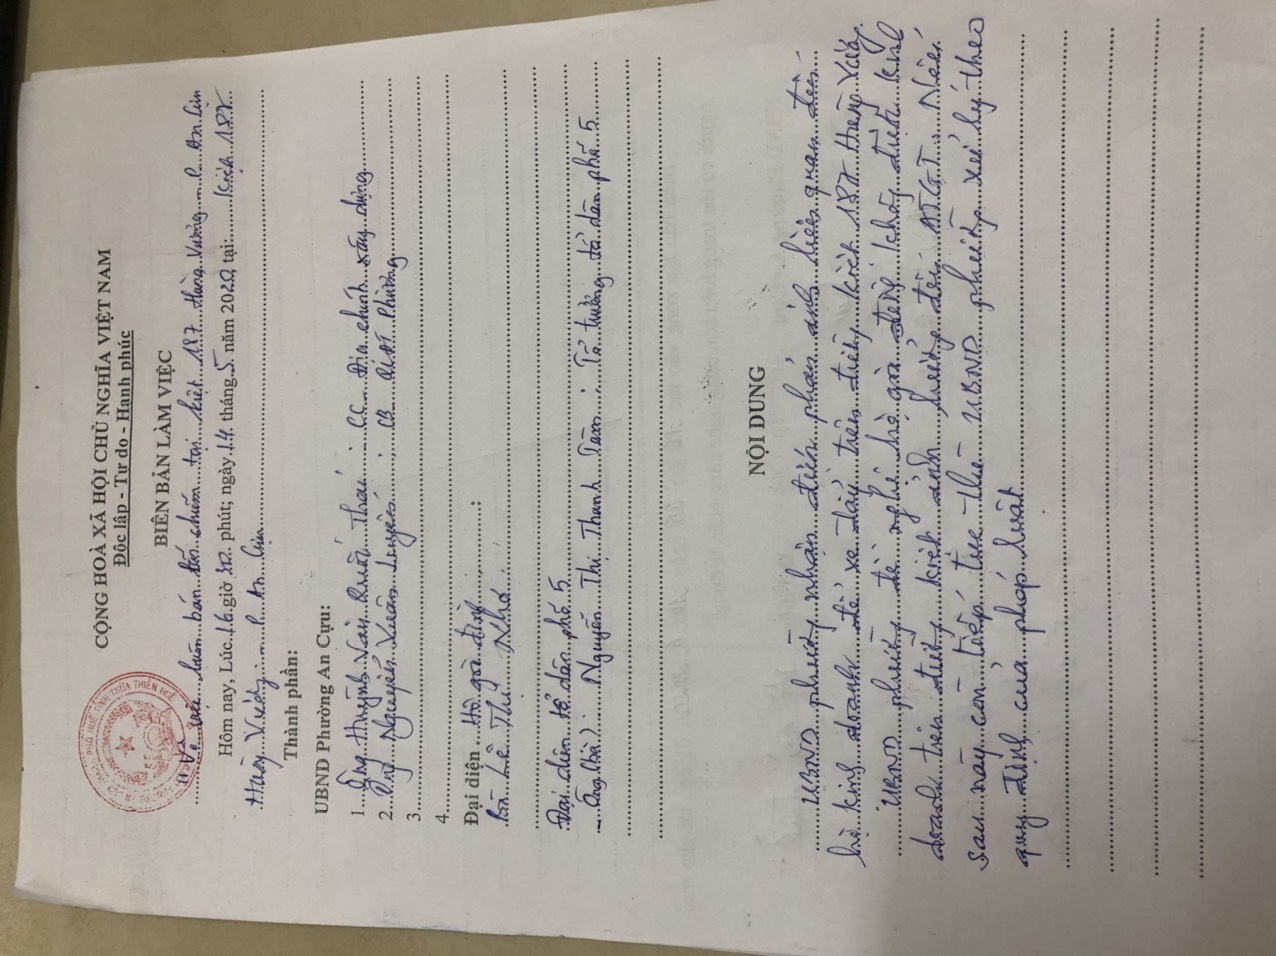 CỘNG HOÀ XÃ HỘI CHỦ NGHĨA VIỆT NAM
Độc lập - Tự do - Hạnh phúc
BIÊN BẢN LÀM VIỆC
buôn bán lấn chiếm tại kiệt 187 Hùng Vương P. An Cựu
Hôm nay, Lúc 16 giờ phút; ngày 14 tháng 5 năm 2020 tại: Kiệt 187
Hùng Vương P. An Cựu
Thành phần:
UBND Phường An Cựu:
1 Ông Huỳnh Văn Thái : CC Địa chính xây dựng
2. Ông Nguyễn Xuân : CB Phường
3.
4.
Đại diện Hộ gia đình :
bà: Lê Thị Nhớ
Đại diện tổ dân phố 5
- Ông (bà): Nguyễn Thị Thanh Tâm : Tổ trưởng tổ dân phố 5
NỘI DUNG
UBND phường nhận đến phản ánh liên quan đến
hộ kinh doanh để xe đẩy trên đường kiệt 187 Hùng Vương.
UBND phường đề nghị hộ gia đình không được kinh
doanh trên đường kiệt ảnh hưởng đến ATGT. Nếu
sau này còn tiếp tục thì UBND phường xử lý theo
quy định của pháp luật